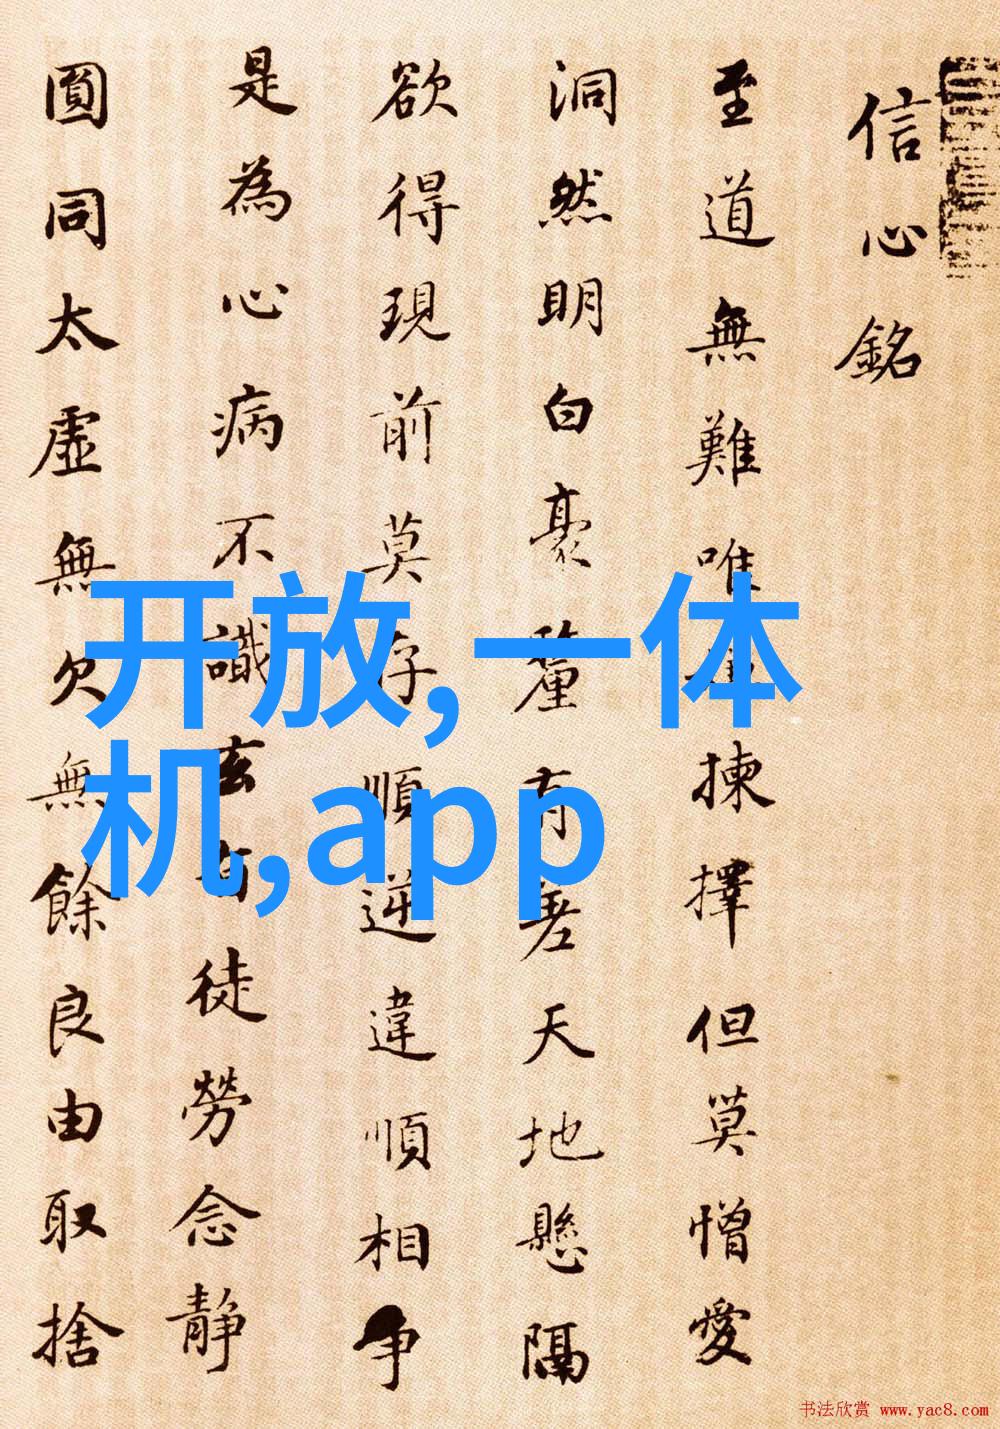 信心銘
至道無難唯揀擇但莫憎愛
洞然明白豪釐有差天地懸隔
欲得現前莫存順逆違順相争
是為心病不識玄旨徒勞念静
圓同太虛無欠無餘良由取捨
开放,一体
机,app
书法欣赏 www.yac8.com